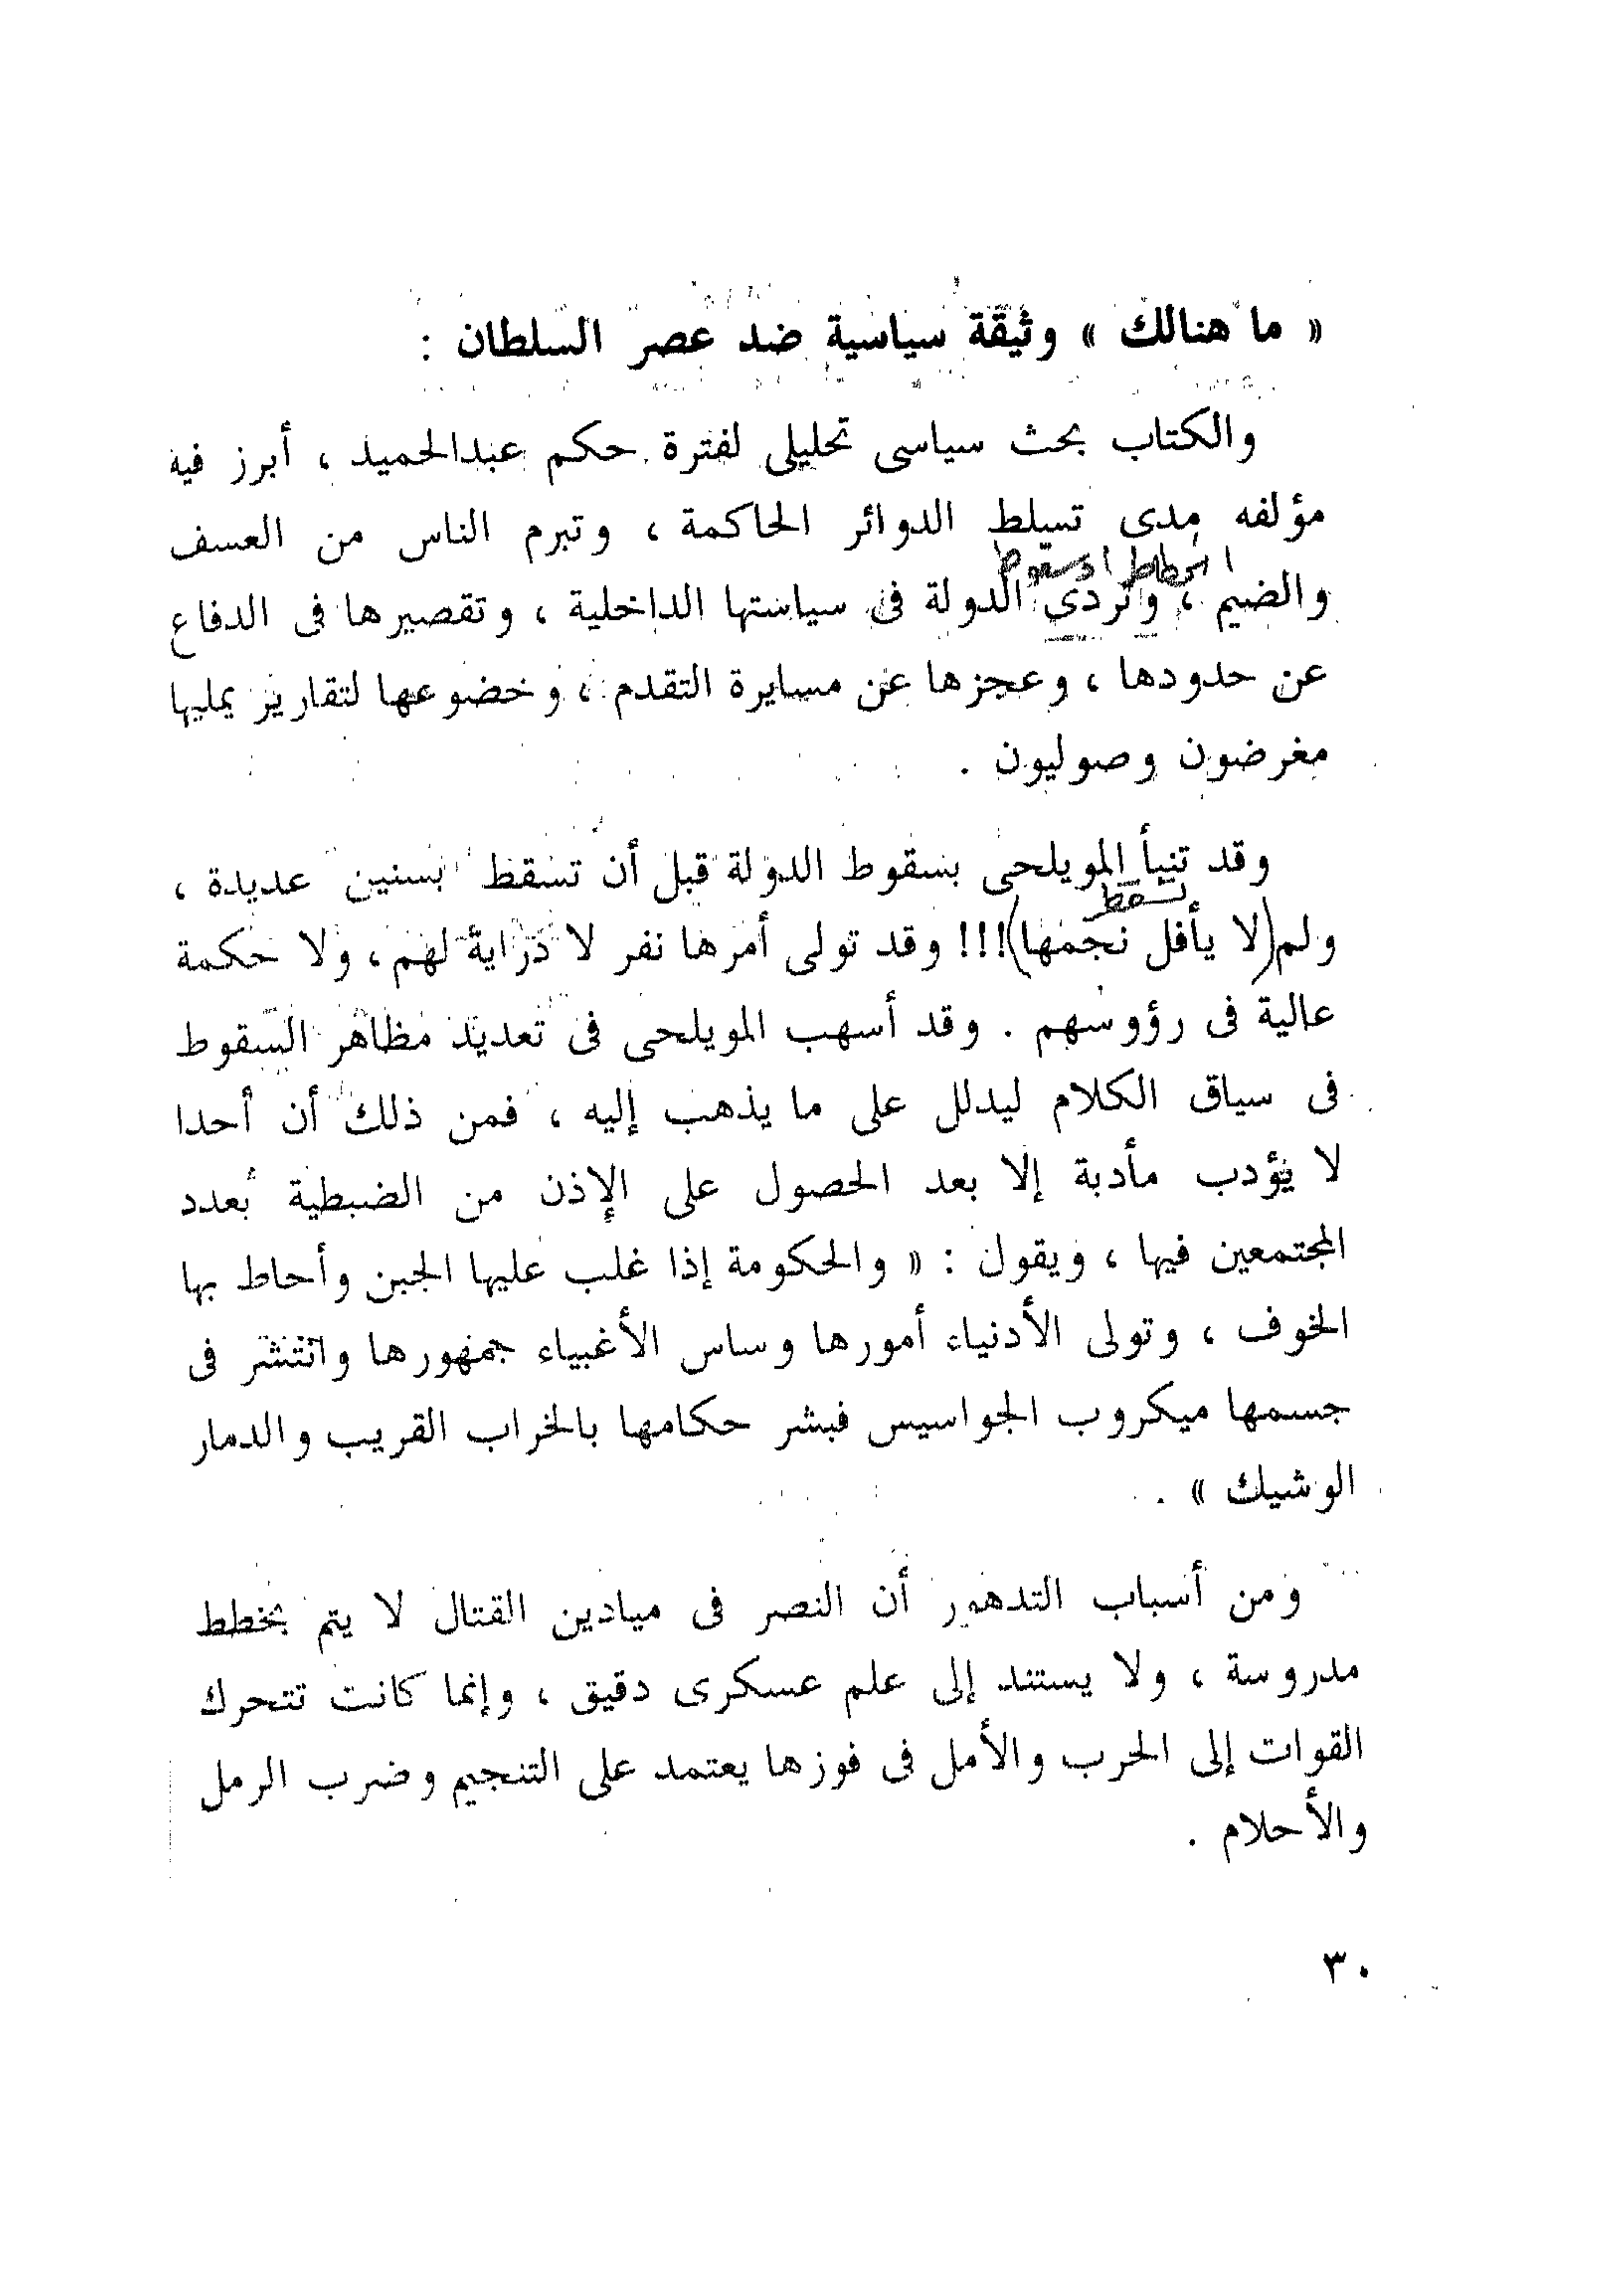 « ما هنالك » وثيقة سياسية ضد عصر السلطان :
والكتاب بحث سياسى تحليلى لفترة حكم عبدالحميد ، أبرز فيه
مؤلفه مدى تسلط الدوائر الحاكمة ، وتبرم الناس من العسف
انحطاط او سقوط
والضيم ، وتردى الدولة فى سياستها الداخلية ، وتقصيرها فى الدفاع
عن حدودها ، وعجزها عن مسايرة التقدم ، وخضوعها لتقارير يمليها
مغرضون وصوليون .
وقد تنبأ المويلحى بسقوط الدولة قبل أن تسقط بسنين عديدة ،
تسقط
ولم (لا يأفل نجمها)!!! وقد تولى أمرها نفر لا دراية لهم ، ولا حكمة
عالية فى رؤوسهم . وقد أسهب المويلحى فى تعديد مظاهر السقوط
فى سياق الكلام ليدلل على ما يذهب إليه ، فمن ذلك أن أحدا
لا يؤدب مأدبة إلا بعد الحصول على الإذن من الضبطية بعدد
المجتمعين فيها ، ويقول : « والحكومة إذا غلب عليها الجبن وأحاط بها
الخوف ، وتولى الأدنياء أمورها وساس الأغبياء جمهورها وانتشر فى
جسمها ميكروب الجواسيس فبشر حكامها بالخراب القريب والدمار
الوشيك » .
ومن أسباب التدهور أن النصر فى ميادين القتال لا يتم بخطط
مدروسة ، ولا يستند إلى علم عسكرى دقيق ، وإنما كانت تتحرك
القوات إلى الحرب والأمل فى فوزها يعتمد على التنجيم وضرب الرمل
والأحلام .
٣٠